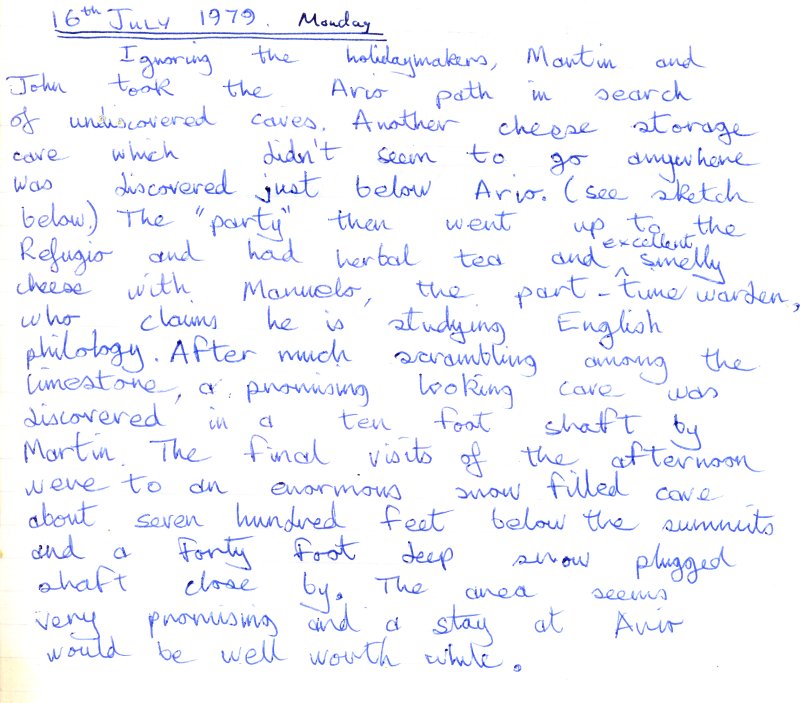 16th July 1979. Monday
Ignoring the holidaymakers, Martin and
John took the Ario path in search
of undiscovered caves. Another cheese storage
cave which didn't seem to go anywhere
was discovered just below Ario. (see sketch
below) The "party" then went up to the
Refugio and had herbal tea and excellent smelly
cheese with Manuelo, the part-time warden,
who claims he is studying English
philology. After much scrambling among the
limestone, a promising looking cave was
discovered in a ten foot shaft by
Martin. The final visits of the afternoon
were to an enormous snow filled cave
about seven hundred feet below the summits
and a forty foot deep snow plugged
shaft close by. The area seems
very promising and a stay at Ario
would be well worth while.